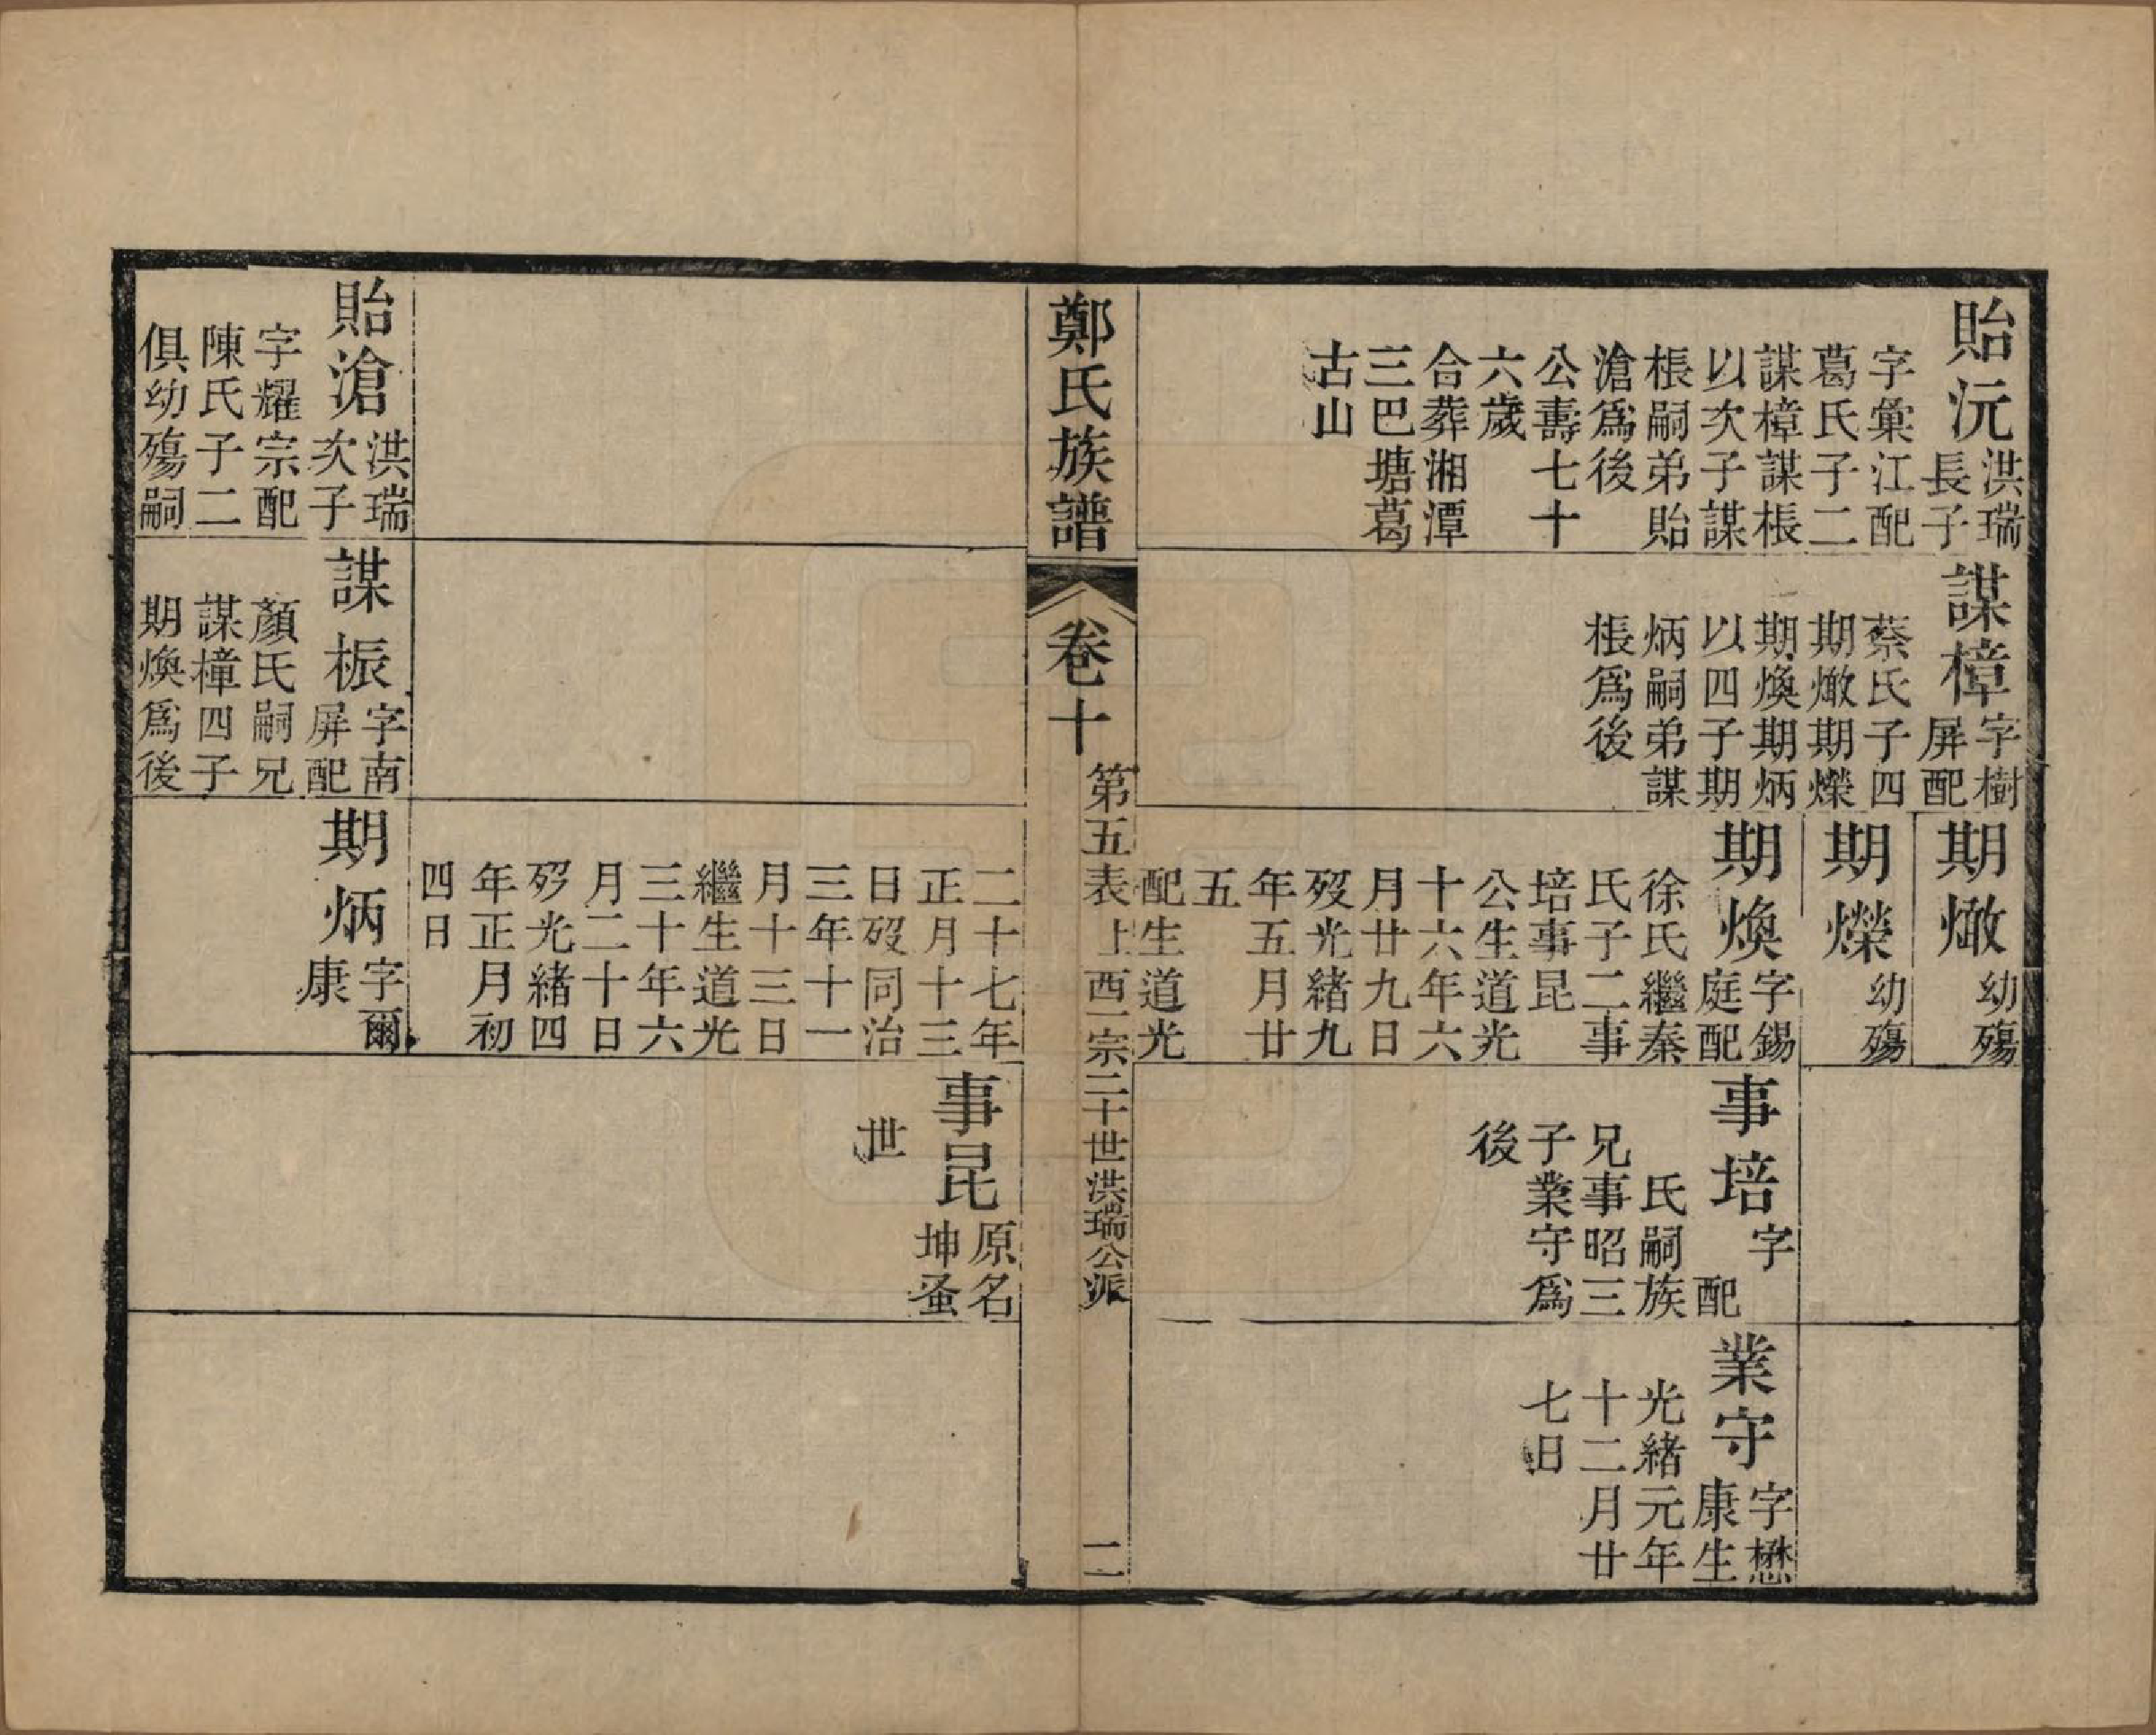 貽沅
洪瑞
長子
字彙江配
葛氏子二
謀樟謀棖
以次子謀
棖嗣弟貽
滄爲後
公壽七十
六歲
合葬湘潭
三巴塘葛
古山
謀樟
字樹
屏配
蔡氏子四
期燉期爃
期煥期炳
以四子期
炳嗣弟謀
棖爲後
期燉
幼殤
期爃
幼殤
期煥
字錫
庭配
徐氏繼秦
氏子二事
培事昆
公生道光
十六年六
月廿九日
歿光緒九
年五月廿
五
配生道光
事培
字
配
氏嗣族
兄事昭三
子業守爲
後
業守
字懋
康生
光緒元年
十二月廿
七日
鄭氏族譜
卷十
第五表上
西一宗二十世洪瑞公派
二
二十七年
正月十三
日歿同治
三年十一
月十三日
繼生道光
三十年六
月二十日
歿光緒四
年正月初
四日
事昆
原名
坤蚤
世
貽滄
洪瑞
次子
字耀宗配
陳氏子二
俱幼殤嗣
謀棖
字南
屏配
顏氏嗣兄
謀樟四子
期煥爲後
期炳
字爾
康